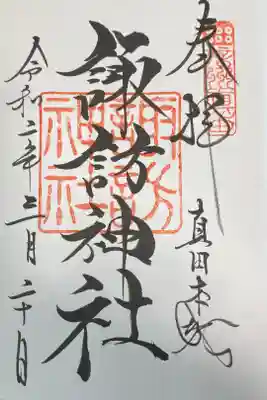 奉拝
真田本城
諏訪神社
令和二年三月二十日